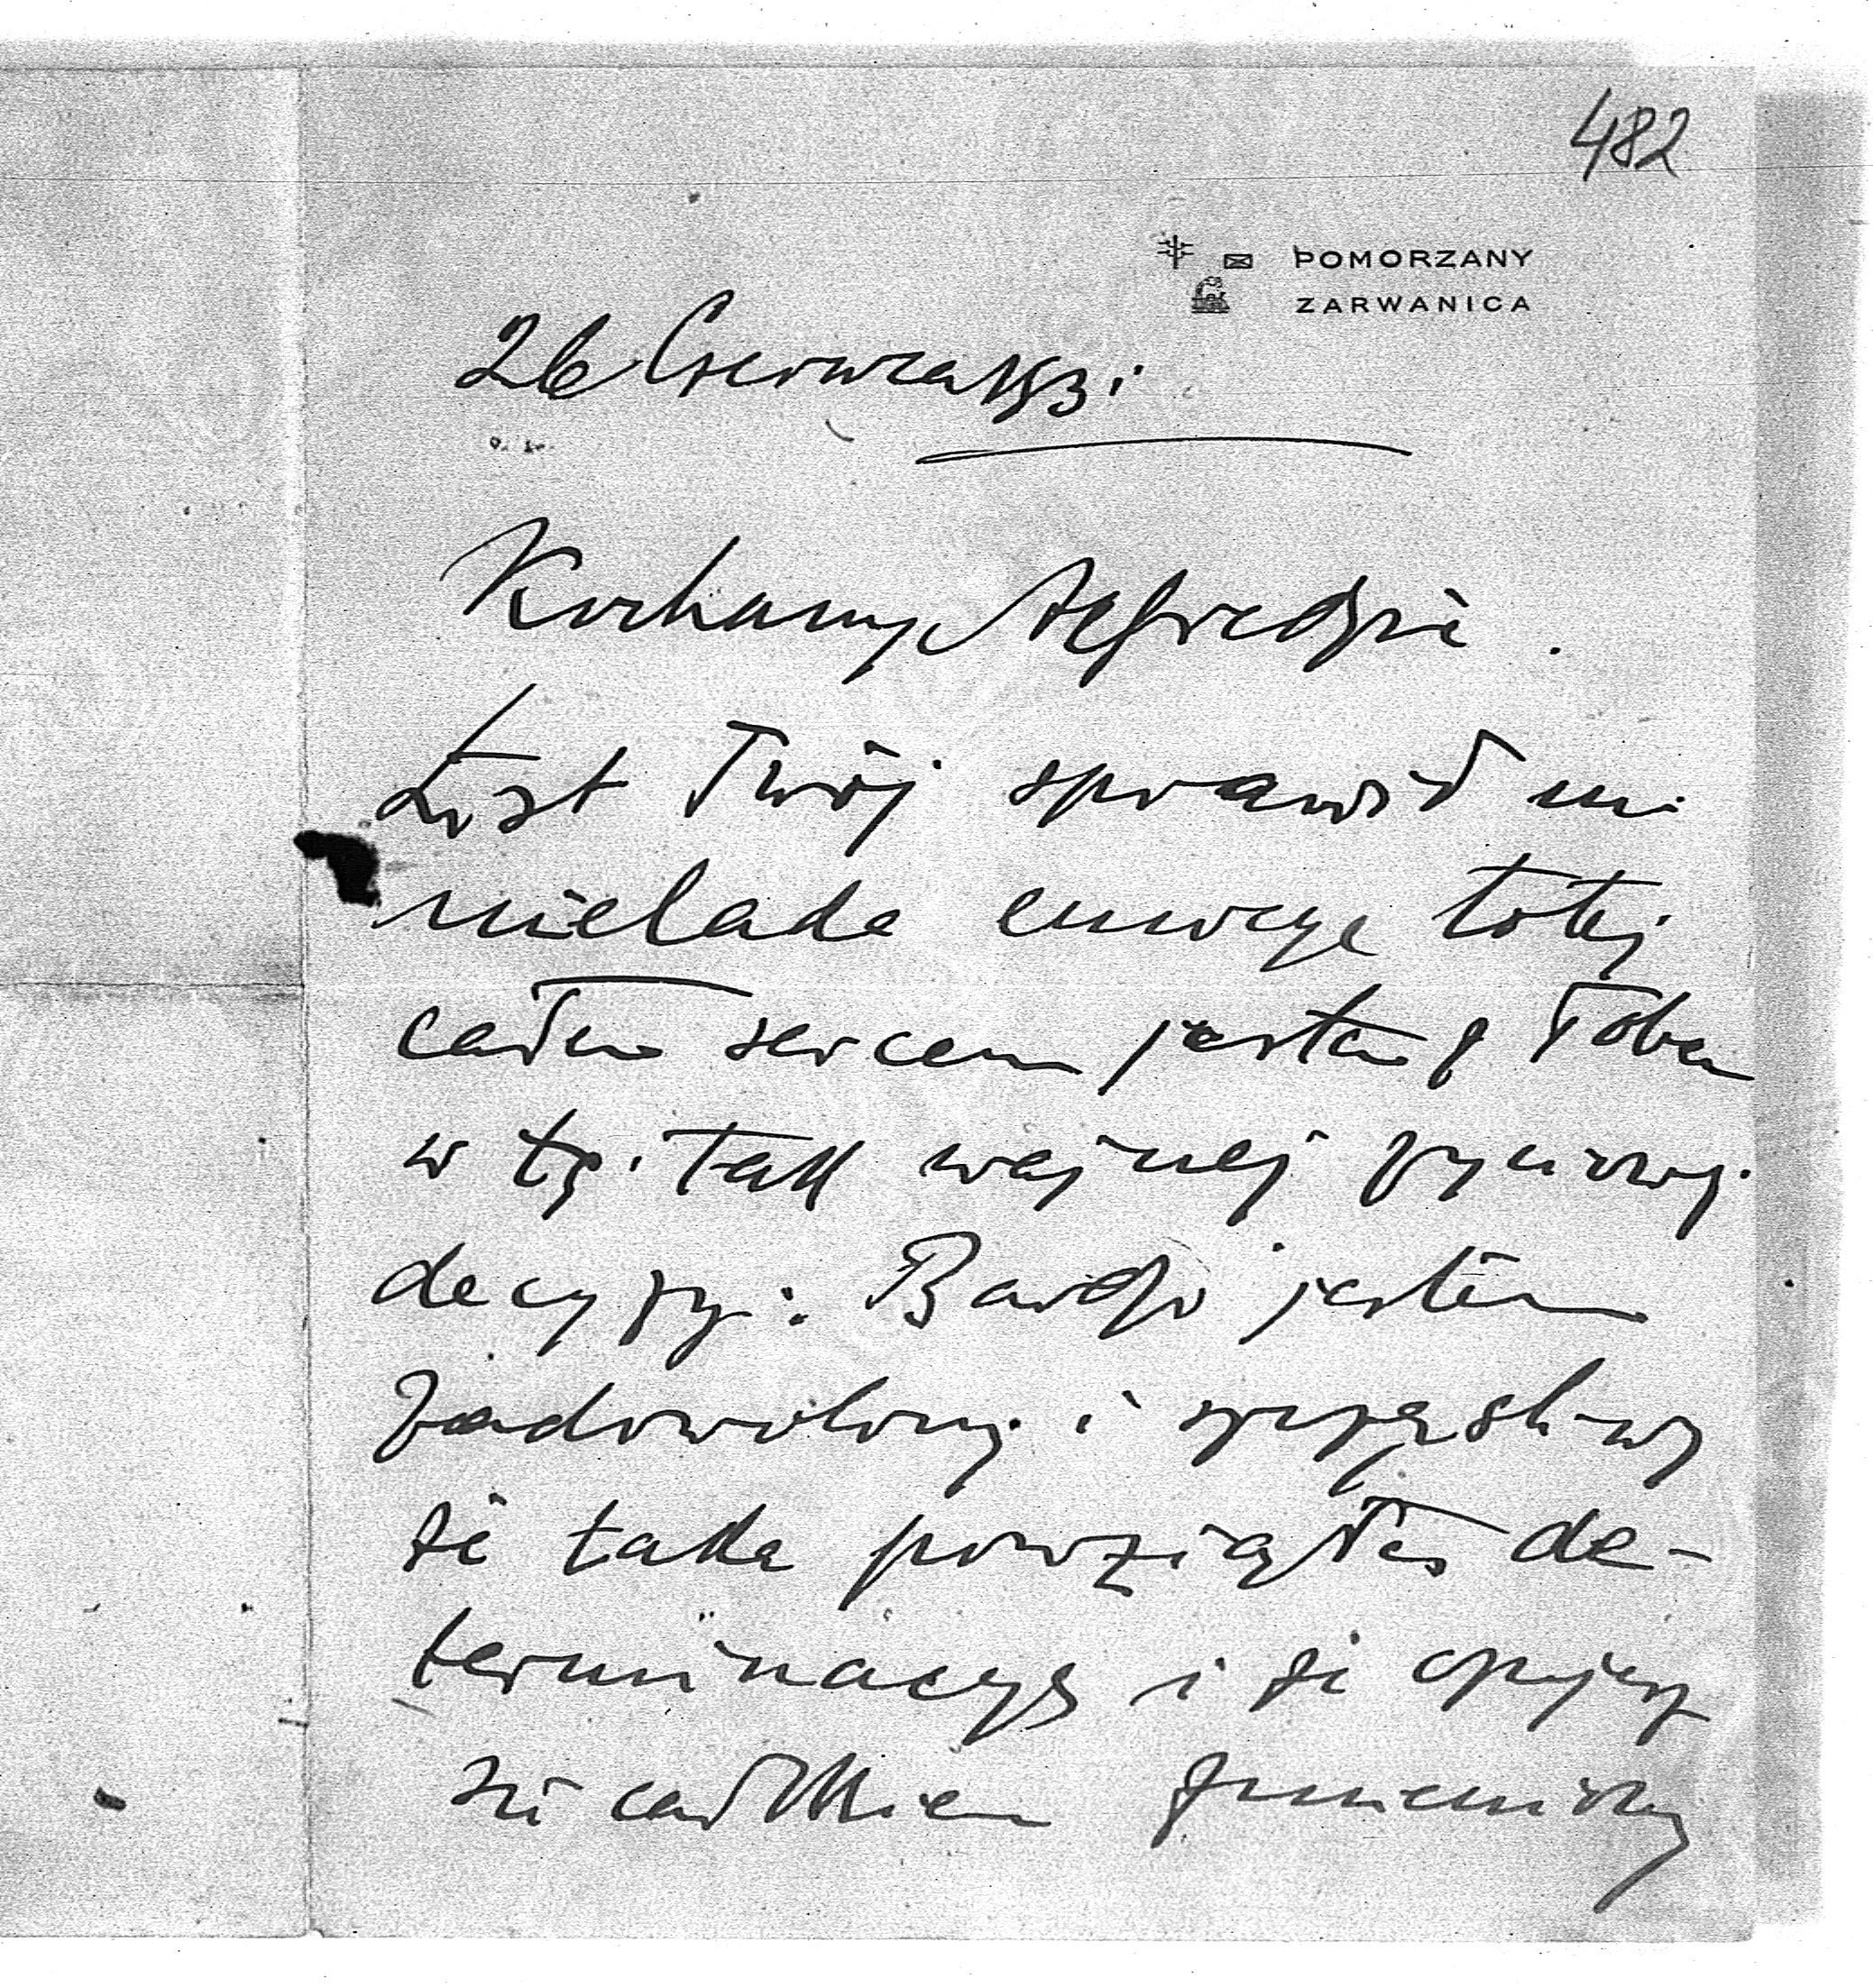 482
POMORZANY
ZARWANICA
26 Czerwca
Kochany Alfredzie.
List Twój sprawił mi
nielada emocye toteż
całem sercem jestem z Tobą
w tej tak ważnej życiowej
decyzyi. Bardzo jestem
zadowolony i szczęśliwy
że taką powziąłeś de-
terminacyę i że czujesz
się całkiem zmieniony